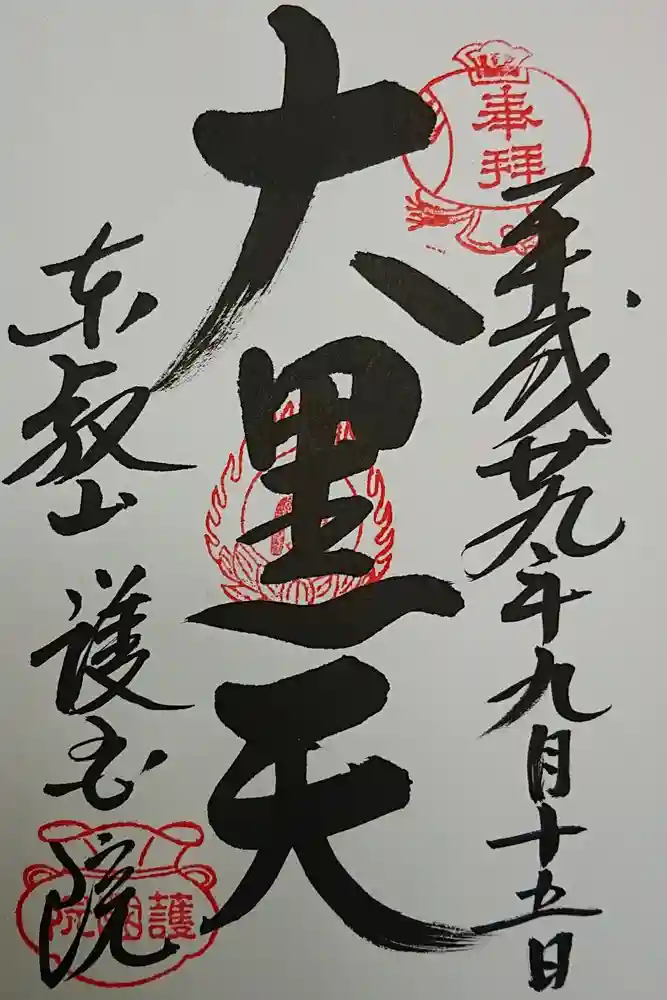 奉拝
平成廿九年九月十五日
大黒天
東叡山
護国院
護國院